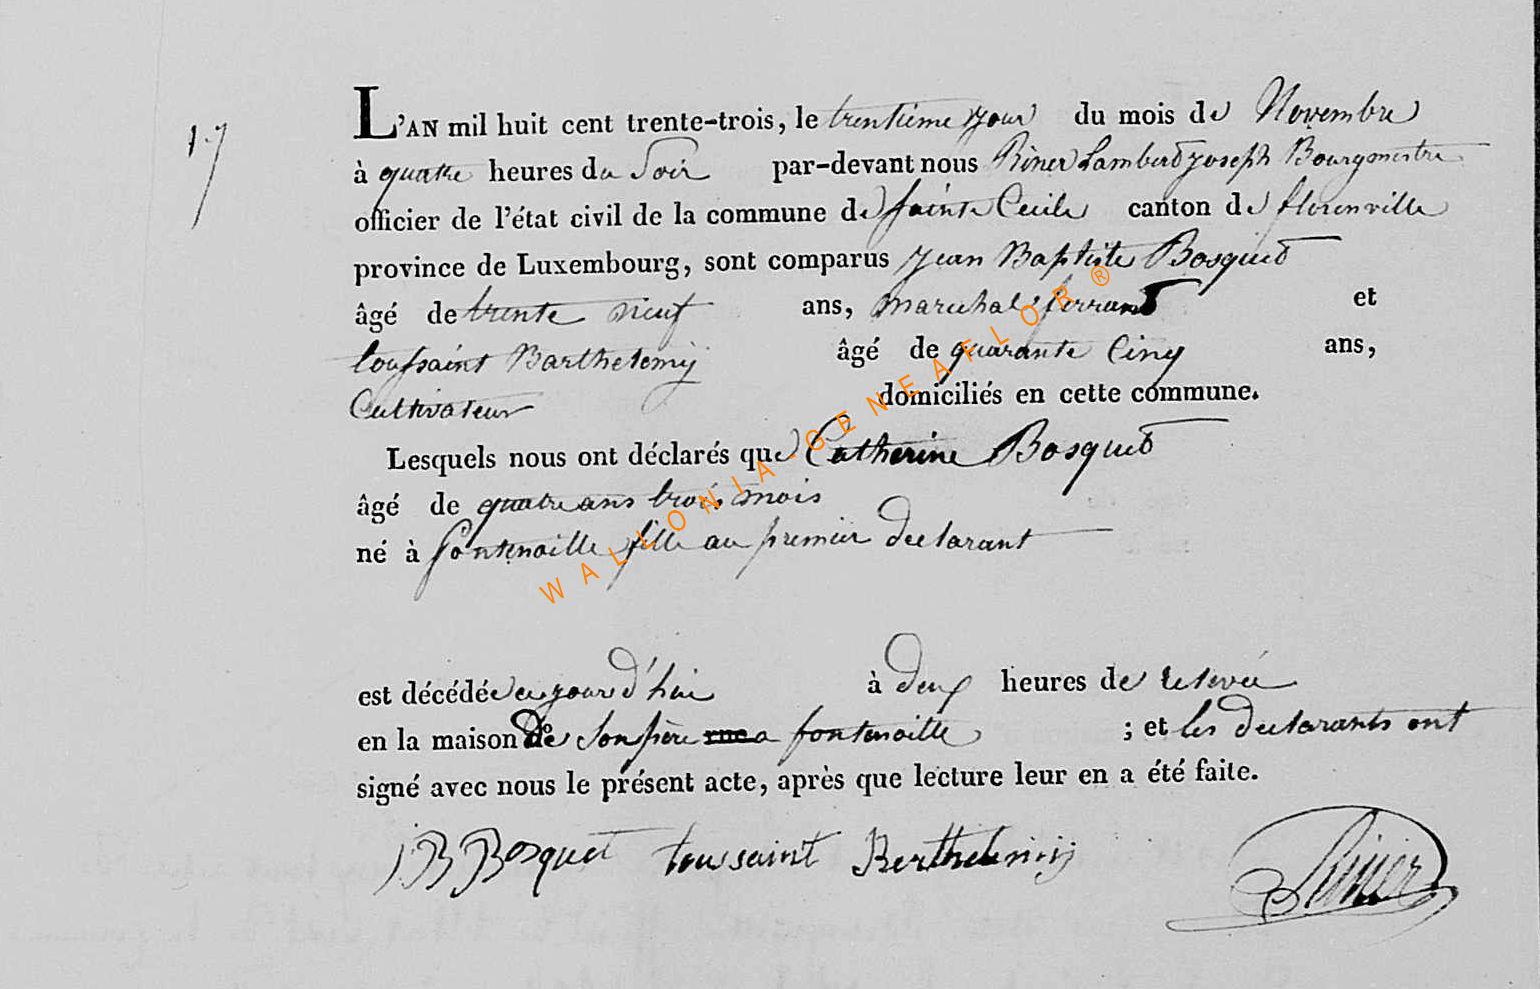 17
L'AN mil huit cent trente-trois, le trentieme jour du mois de Novembre
à quatre heures du Soir par-devant nous Riner Lambert joseph Bourgmestre
officier de l'état civil de la commune de Sainte Cecile canton de florenville
province de Luxembourg, sont comparus Jean Baptiste Bosquet
âgé de trente neuf ans, marechal ferrant et
toussaint Barthelemij âgé de quarante Cinq ans,
Cultivateur domiciliés en cette commune.
Lesquels nous ont déclarés que Catherine Bosquet
âgé de quatre ans trois mois
né à fontenoille fille au premier declarant
est décédée aujourd'hui à deux heures de relevée
en la maison de son père rue a fontenoille ; et les declarants ont
signé avec nous le présent acte, après que lecture leur en a été faite.
JB Bosquet toussaint Berthelemij Riner
WALLONIA-GENEAFLOR®